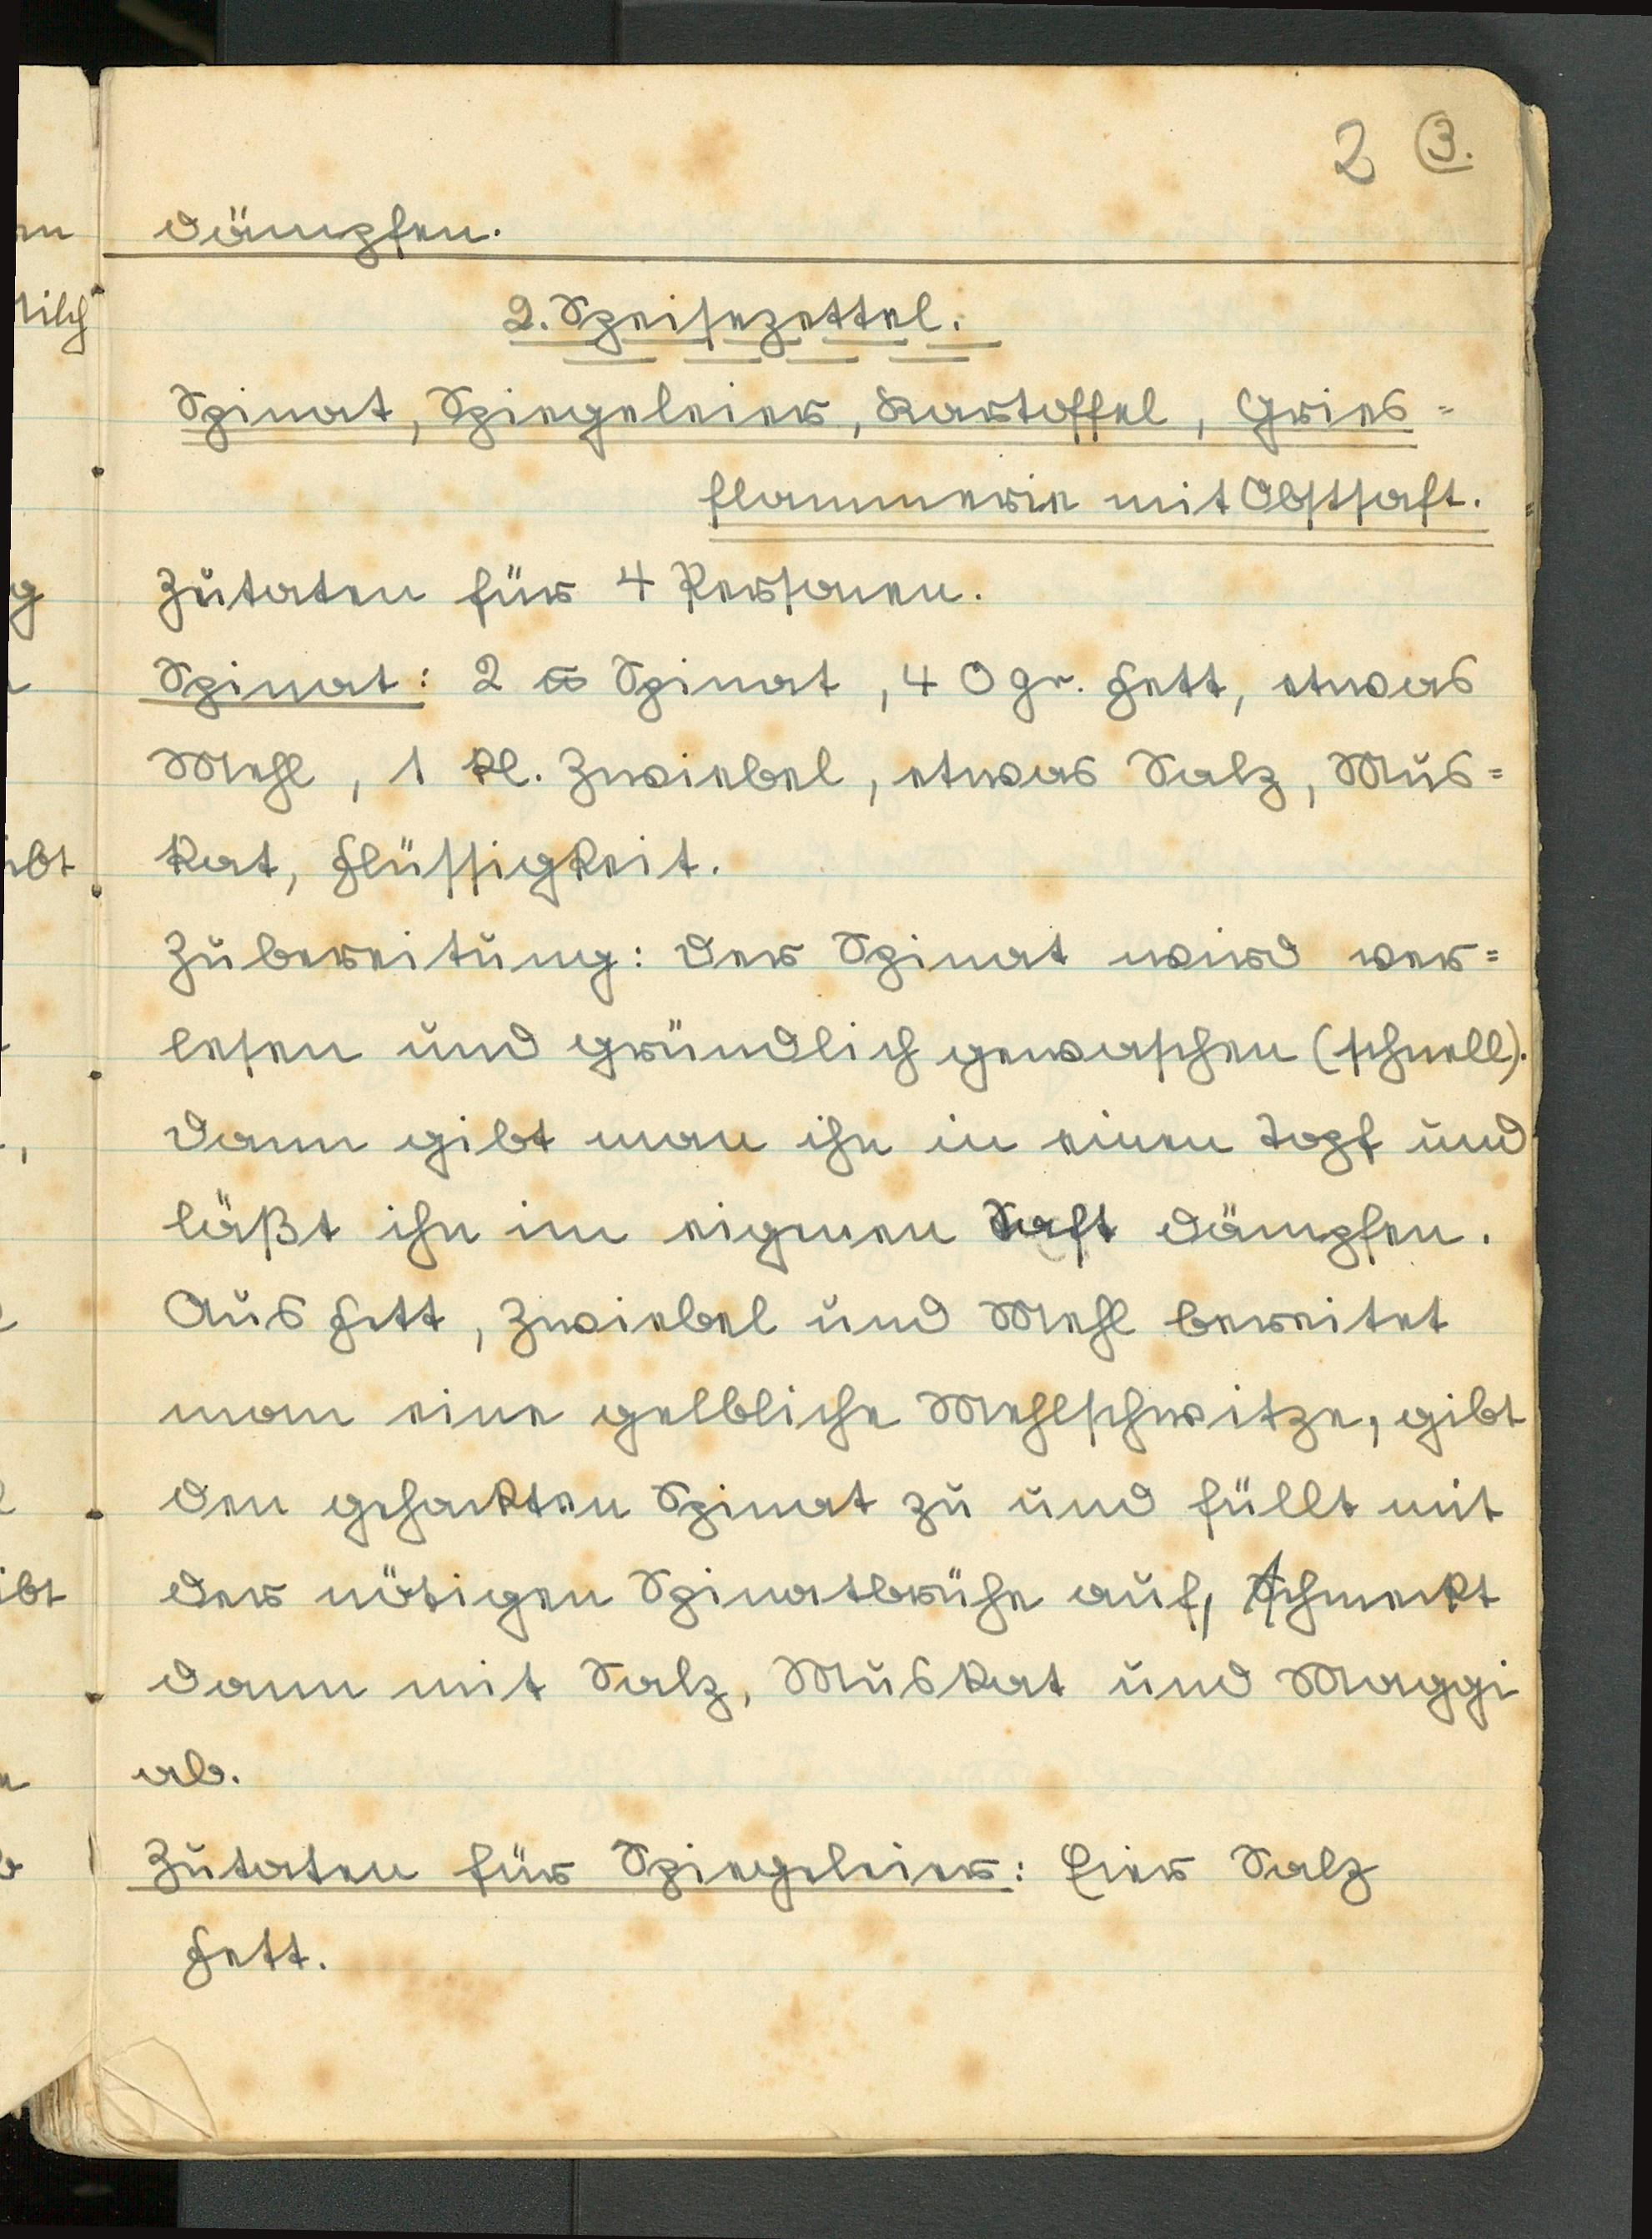 2 3.
dämpfen.
2. Speisezettel.
Spinat, Spiegeleier, Kartoffel, Gries=
flammerie mit Obstsaft.
Zutaten für 4 Personen.
Spinat: 2 ℔ Spinat, 40 gr. Fett, etwas
Mehl, 1 kl. Zwiebel, etwas Salz, Mus=
kat, Flüssigkeit.
Zubereitung: Der Spinat wird ver=
lesen und gründlich gewaschen (schnell).
Dann gibt man ihn in einen Topf und
läßt ihn im eigenen Saft dämpfen.
Aus Fett, Zwiebel und Mehl bereitet
man eine gelbliche Mehlschwitze, gibt
den gehackten Spinat zu und füllt mit
der nötigen Spinatbrühe auf, schmeckt
dann mit Salz, Muskat und Maggi
ab.
Zutaten für Spiegeleier: Eier Salz
Fett.